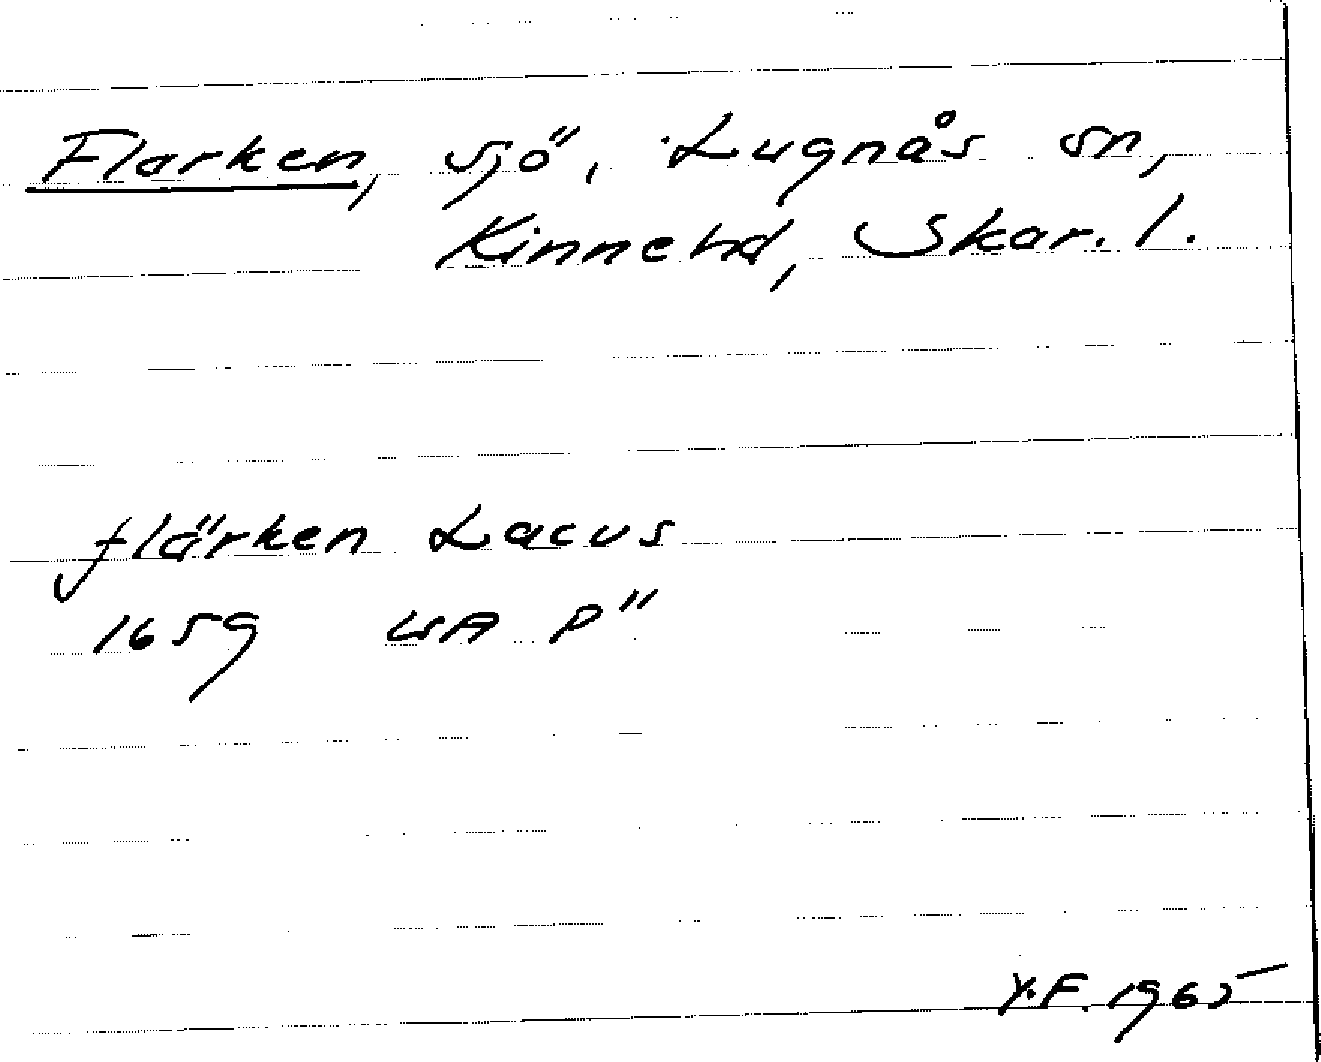 Flarken, sjö, Lugnås sn,
Kinnehd, Skar. l.
flärken Lacus
1659 LSA P"
Y.F. 1965